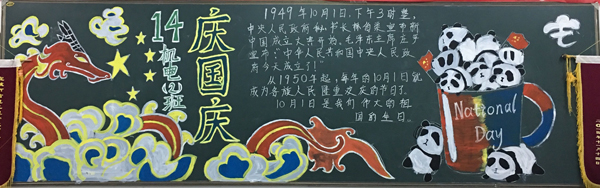 14
机电(2)班
庆国庆
1949年10月1日,下午3时整,
中央人民政府秘书长林伯渠宣布新
中国成立大典开始。毛泽东主席庄严
宣布“中华人民共和国中央人民政
府今天成立了!”
从1950年起,每年的10月1日就
成为各族人民隆重欢庆的节日了。
10月1日是我们伟大的祖
国的生日。
National
Day